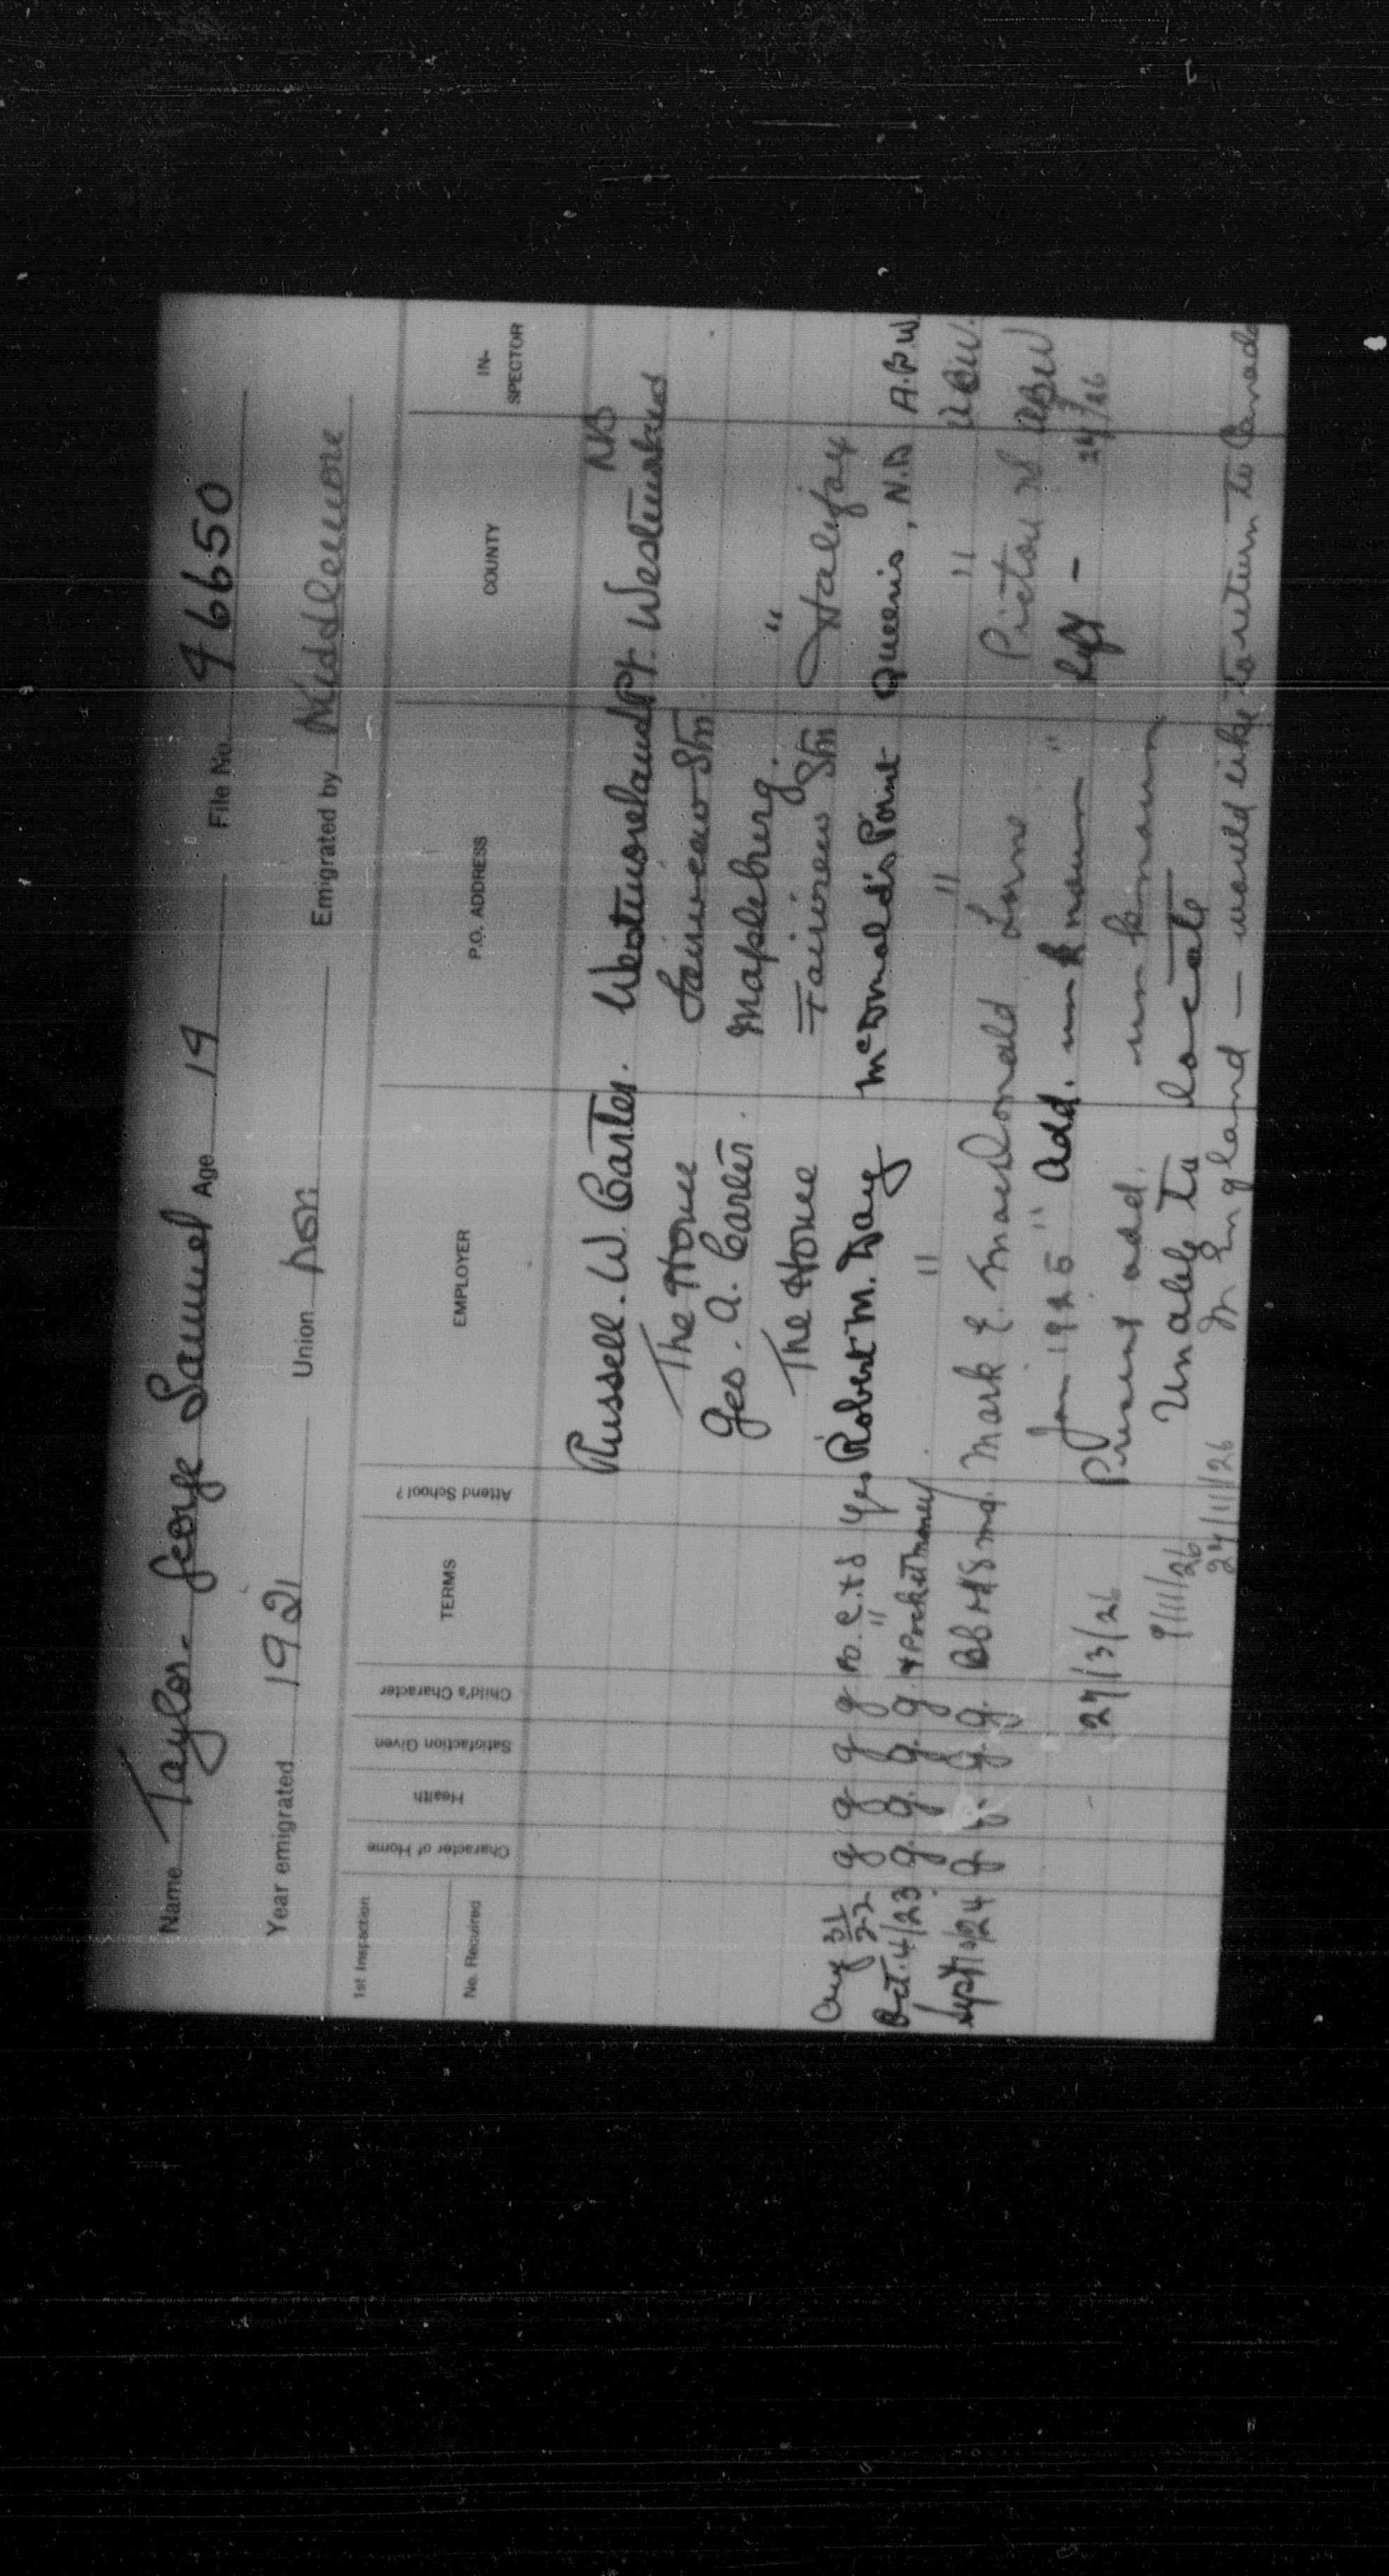 Name Taylor - George Samuel Age 14 File No. 46650
Year emigrated 1921 Union non Emigrated by Middlemore
1st Inspection
No. Required
Character of Home Health Satisfaction Given Child's Character TERMS Attend School? EMPLOYER P.O. ADDRESS COUNTY IN-SPECTOR
Russell. W. Carter. Westmoreland Pt. Westmorland NB
The Home Fairview Stn
Geo. A. Carter. Mapleburg. "
The Home Fairview Stn Halifax
Aug 31/22 g g g g B. C. & S yes Robert M. Day McDonald's Point Queens, N.B A.B.W.
Oct. 4/23 g. g. g. g. " & Pocket money " " " ABW.
Sept /24 g g. g. g. Mark E. MacDonald Lorne Pictou NS ABW
Jan 1925 " Add. unknown " left - 24/3/26
27/3/26 Present add. unknown
9/11/26 Unable to locate
24/11/26 In England — would like to return to Canada